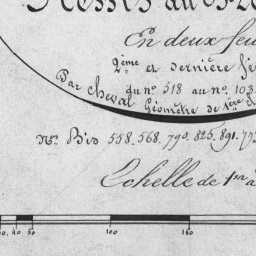 En deux feu
2ème et dernière fe
du no. 518 au no. 103
Par Cheval Géomètre de 1ère c
Nos. Bis 558. 568. 790. 825. 891. 79
Echelle de 1 à
50 100 150